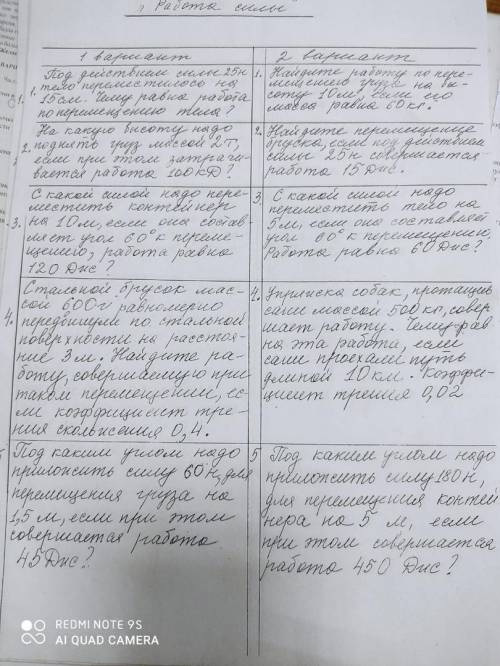 „Работа силы"
1 вариант
1. Под действием силы 25н
тело переместилось на
15см. Чему равна работа
по перемещению тела?
На какую высоту надо
2. поднять груз массой 2т,
если при этом затрачи-
вается работа 100кДж?
С какой силой надо пере-
3. местить контейнер
на 10м, если она состав-
ляет угол 60° к переме-
щению, работа равна
120 Дж?
Стальной брусок мас-
сой 600г равномерно
4. передвинули по стальной
поверхности на расстоя-
ние 3м. Найдите ра-
боту, совершаемую при
таком перемещении, ес-
ли коэффициент тре-
ния скольжения 0,4.
Под каким углом надо
приложить силу 60н, для
перемещения груза на
1,5м, если при этом
совершается работа
45Дж?
2 вариант
1. Найдите работу по пере-
мещению груза на вы-
соту 10м, если его
масса равна 60кг.
2. Найдите перемещение
бруска, если под действием
силы 25н совершается
работа 15Дж.
3. С какой силой надо
переместить тело на
5м, если она составляет
угол 60° к перемещению.
Работа равна 60Дж?
4. Упряжка собак, протащив
сани массой 500кг, совер-
шает работу. Чему рав-
на эта работа, если
сани проехали путь
длиной 10км. Коэффи-
циент трения 0,02
5 Под каким углом надо
приложить силу 180н,
для перемещения контей
нера на 5 м, если
при этом совершается
работа 450 Дж?
REDMI NOTE 9S
AI QUAD CAMERA